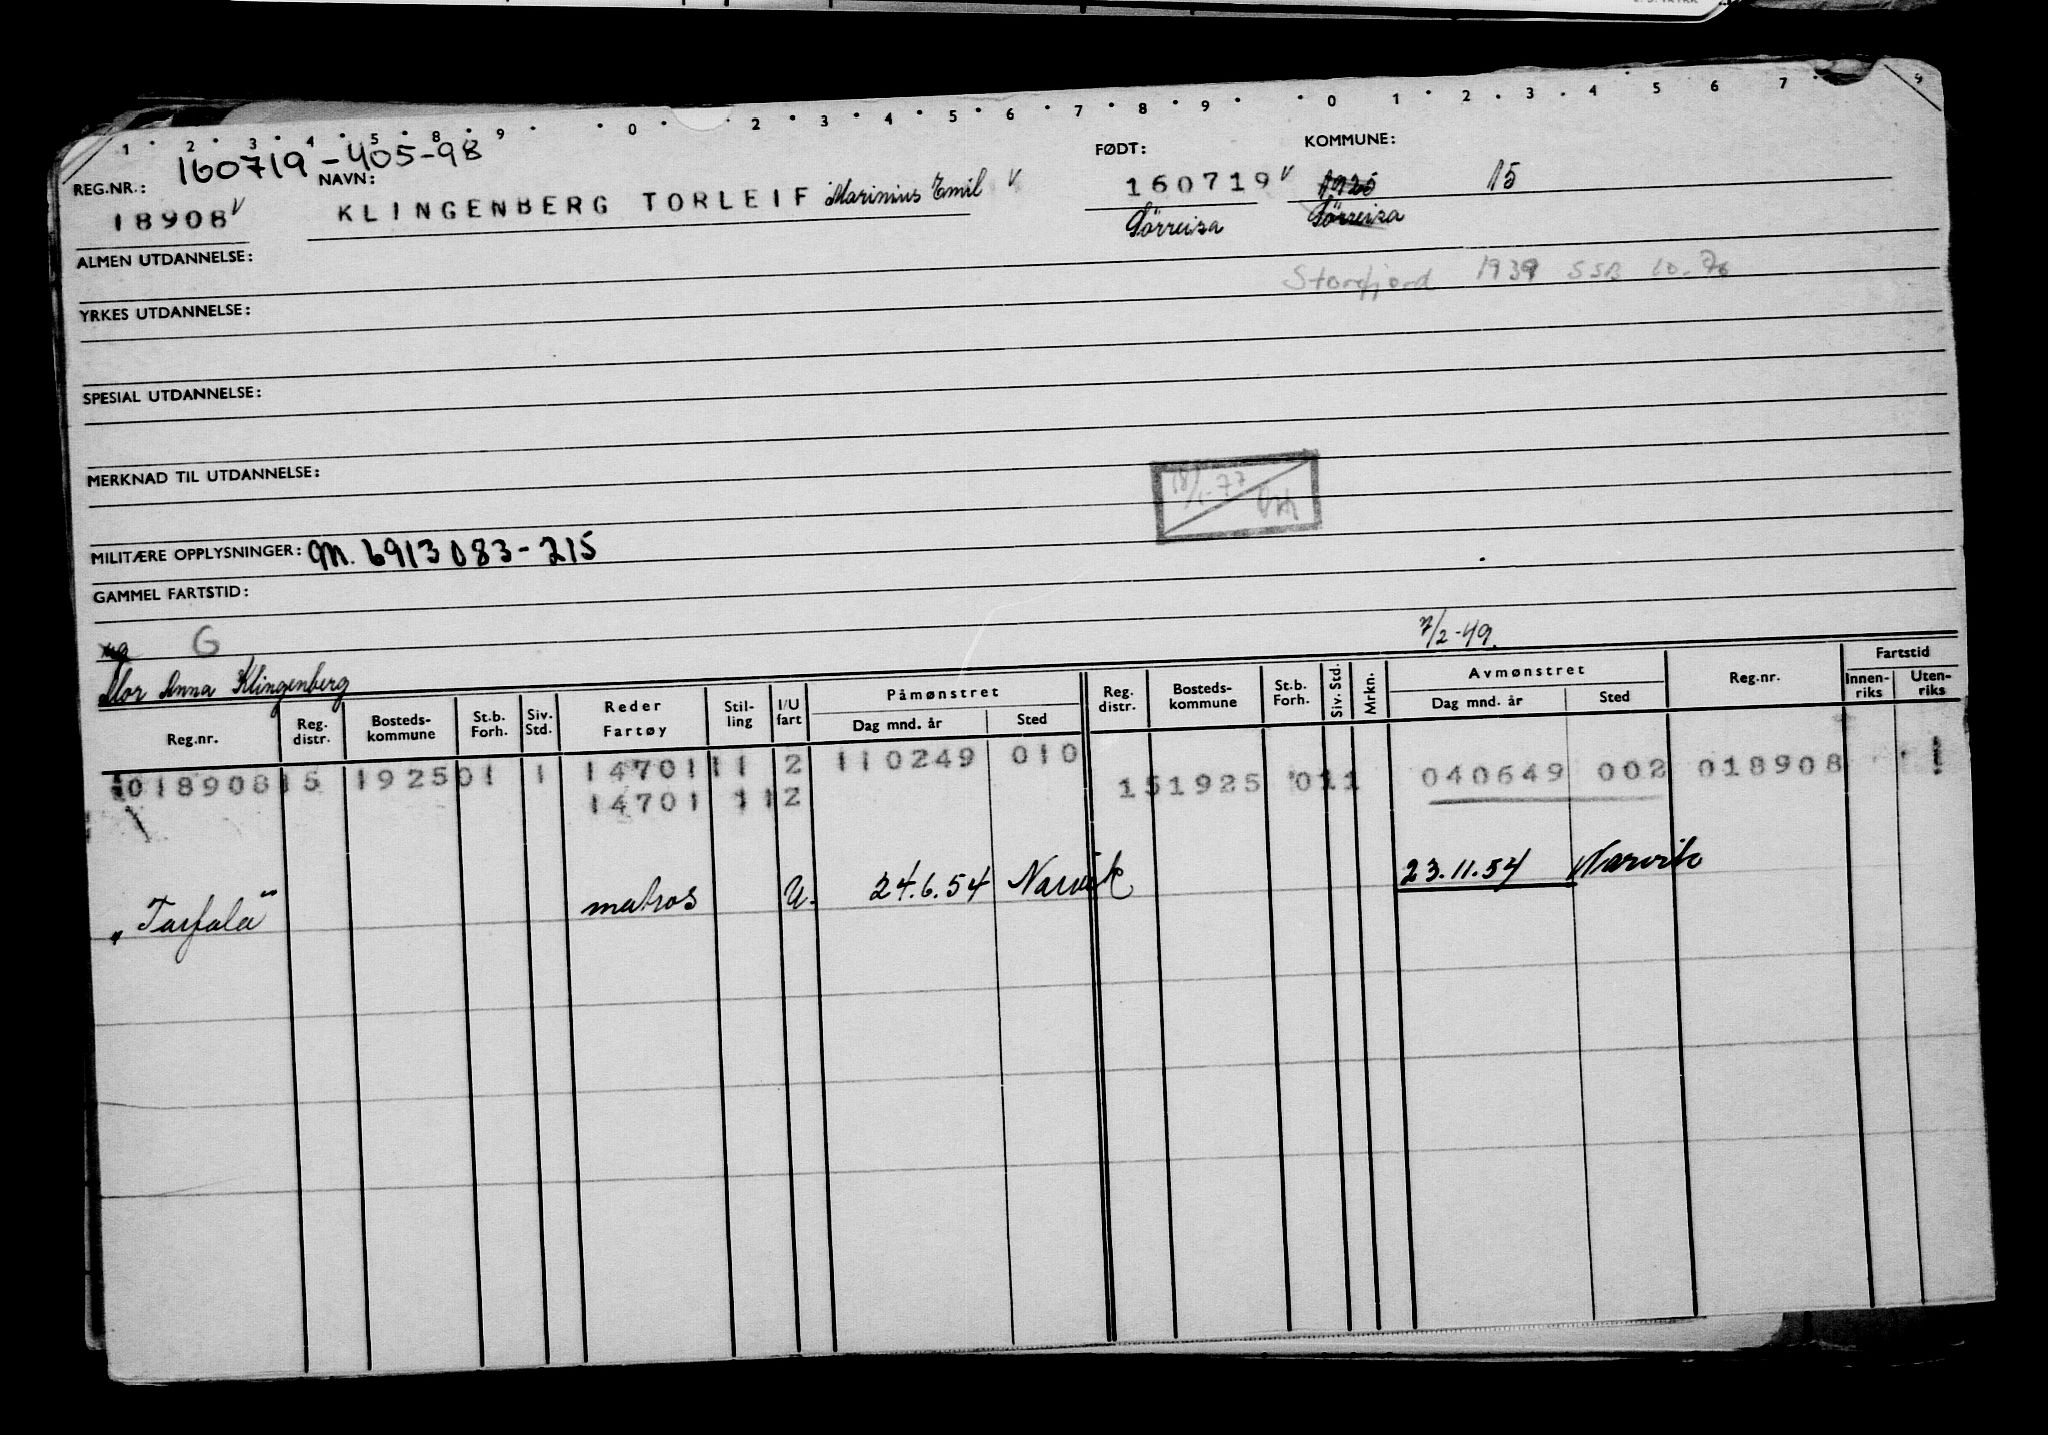 1 2 3 4 5 8 9 0 2 3 4 5 6 7 8 9 0 1 2 3 4 5 6 7 9
160719-405-98
REG.NR.: NAVN: FØDT: KOMMUNE:
18908 V KLINGENBERG TORLEIF Marinius Emil V 160719 V 1925 15
Sörreisa Sörreisa
ALMEN UTDANNELSE:
Storfjord 1939 SSB 10.76
YRKES UTDANNELSE:
SPESIAL UTDANNELSE:
MERKNAD TIL UTDANNELSE:
18/1-77
MILITÆRE OPPLYSNINGER: M. 6913083-215
GAMMEL FARTSTID:
G 7/2-49.
Mor Anna Klingenberg
Reg.nr. Reg. distr. Bosteds-kommune St.b. Forh. Siv. Std. Reder Fartøy Stil-ling I/U fart Påmønstret Dag mnd. år Sted Reg. distr. Bosteds-kommune St.b. Forh. Siv. Std. Mrkn. Avmønstret Dag mnd. år Sted Reg.nr. Fartstid Innen-riks Uten-riks
018908 15 1925 01 1 14701 11 2 110249 010 15 1925 01 1 040649 002 018908 1
14701 11 2
„Tarfala" matros U. 24.6.54 Narvik 23.11.54 Narvik